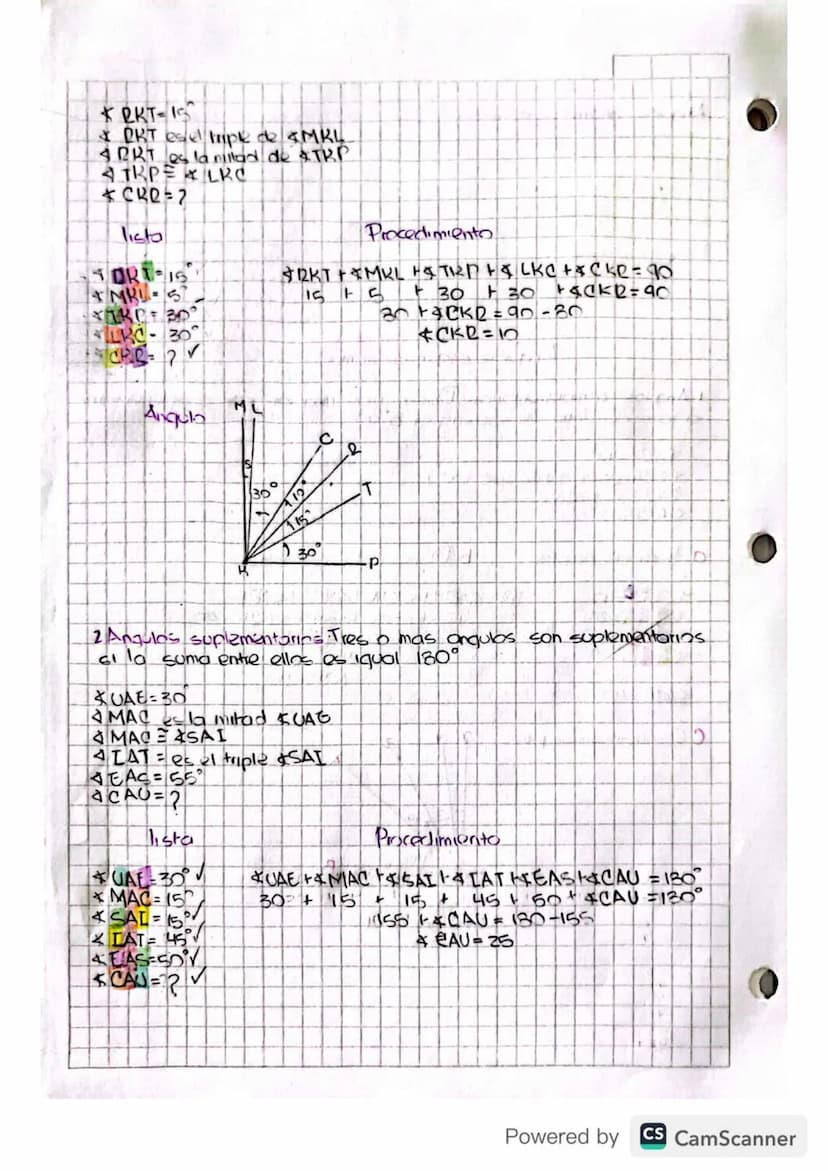 ∡ RKT=15°
∡ RKT es el triple de ∡MKL
∡ RKT es la mitad de ∡TKP
∡ TKP≅ ∡ LKC
∡ CKR=?
lista
Procedimiento
∡ RKT=15°
∡ MKL= 5°
∡ TKP= 30°
∡ LKC= 30°
∡ CKR= ? ✓
∡RKT+∡MKL+∡TKP+∡LKC+∡CKR=90
15 + 5 + 30 + 30 +∡CKR=90
80+∡CKR=90-80
∡CKR=10
Angulo
M L
C
R
5
T
30°
10°
15°
30°
K
P
2 Angulos suplementarios: Tres o mas angulos son suplementarios
si la suma entre ellos es igual 180°
∡UAE=30°
∡MAC es la mitad ∡UAE
∡MAC≅∡SAI
∡IAT=es el triple ∡SAI
∡EAS=55°
∡CAU=?
lista
Procedimiento
∡UAE=30°✓
∡MAC=15°
∡SAI=15°✓
∡IAT=45°✓
∡EAS=50°✓
∡CAU=? ✓
∡UAE+∡MAC+∡SAI+∡IAT+∡EAS+∡CAU=180°
30 + 15 + 15 + 45 + 50 + ∡CAU=180°
155+∡CAU=180-155
∡CAU=25
Powered by CS CamScanner